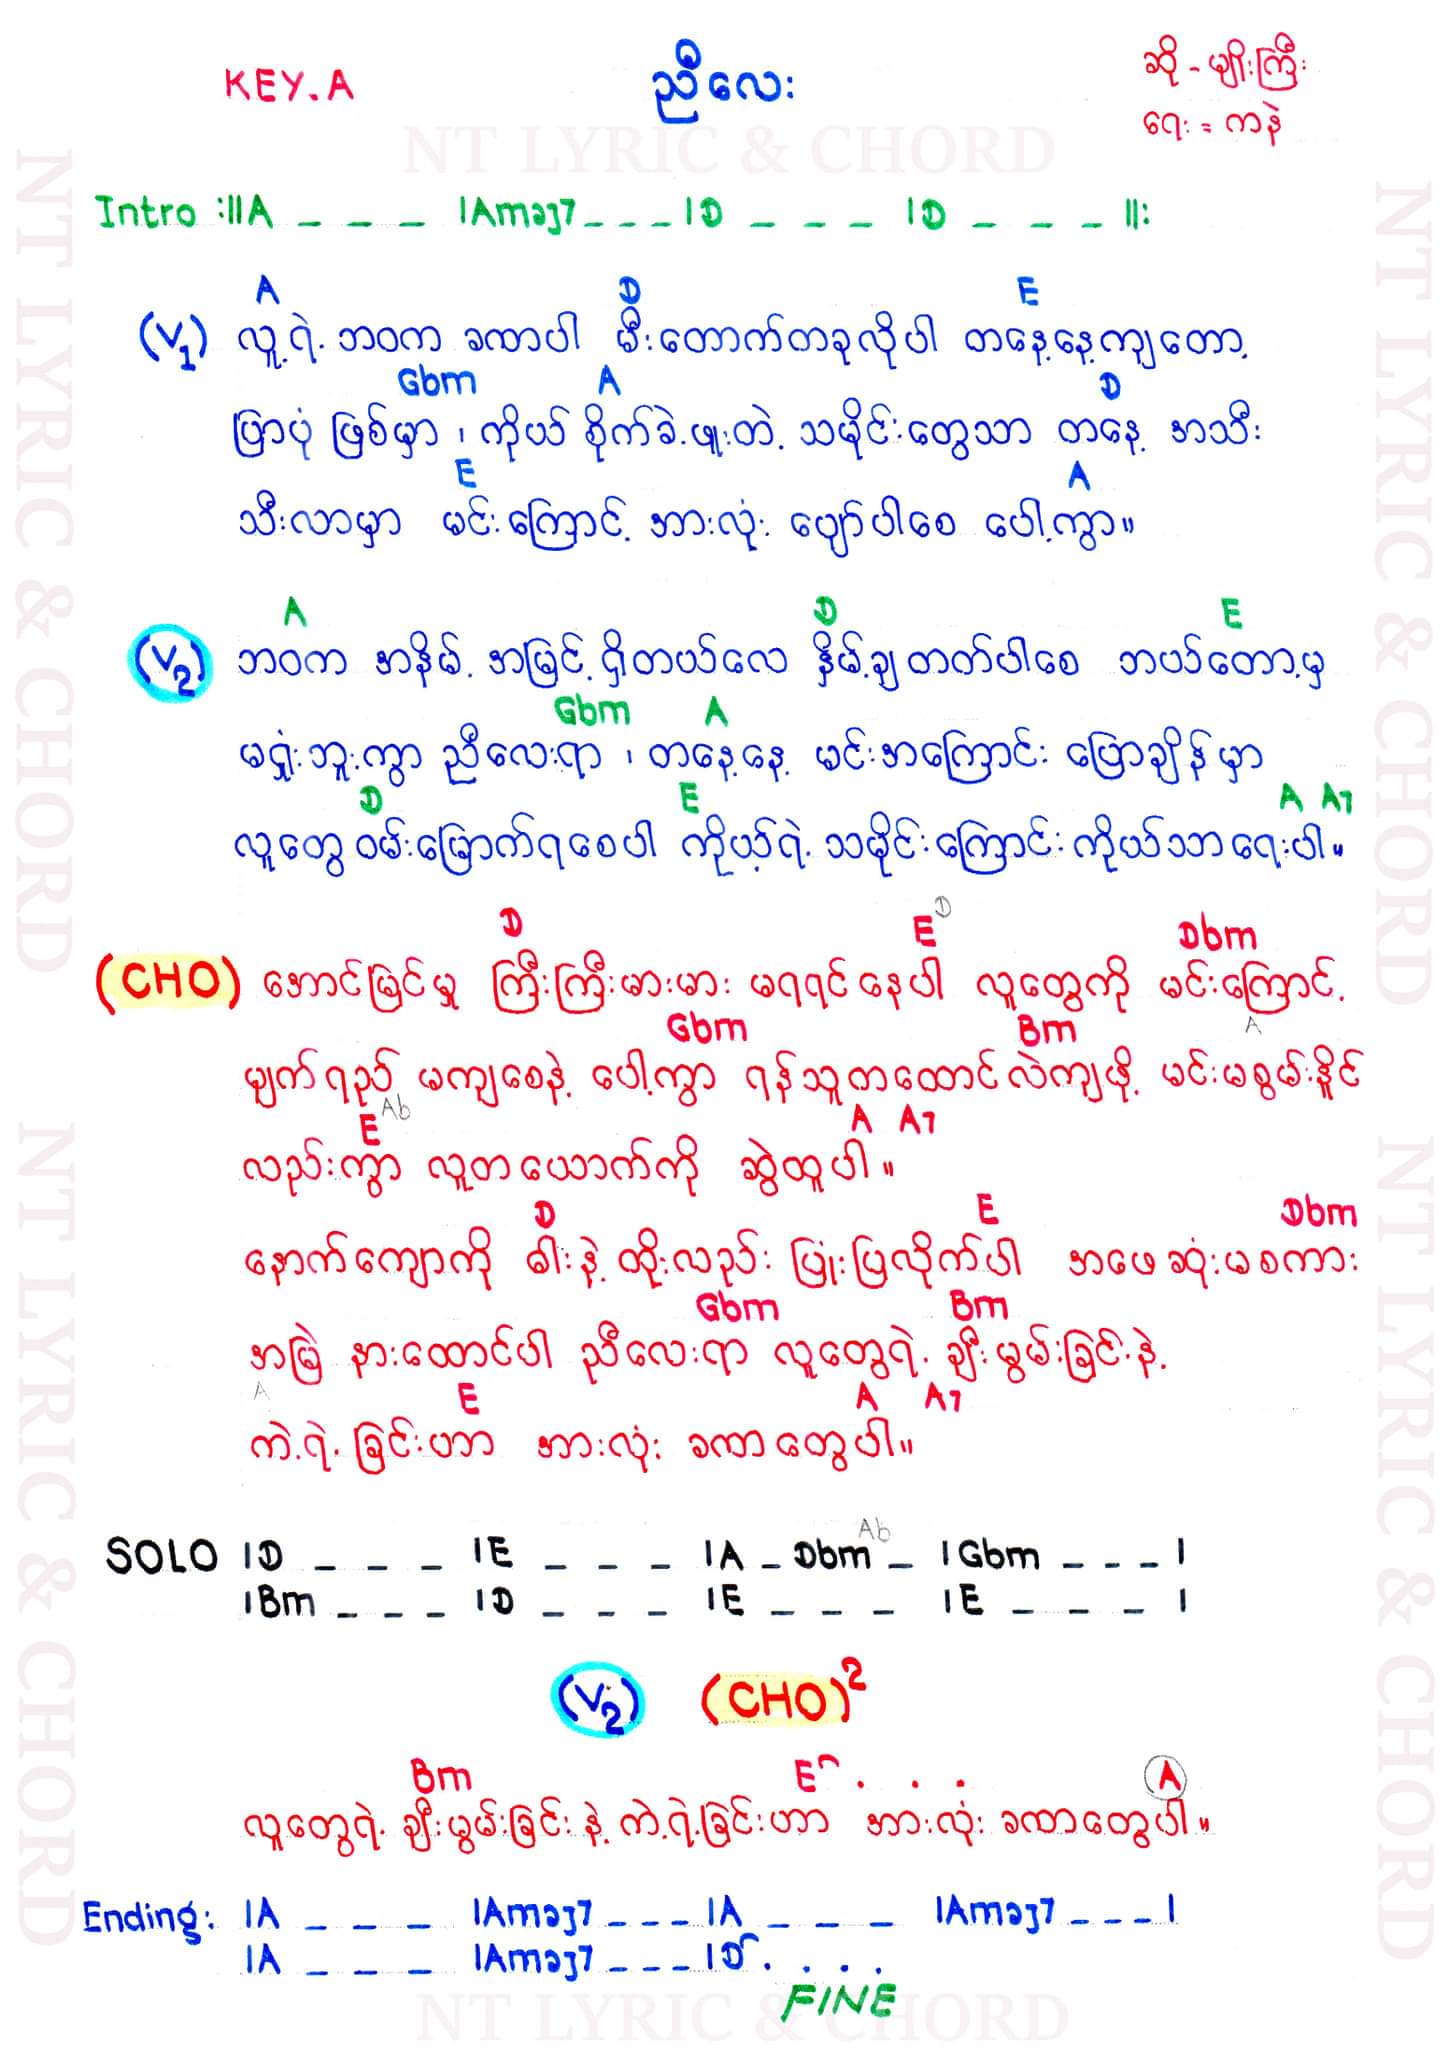 KEY.A
ညီလေး
ဆို - မျိုးကြီး
ရေး = ကနဲ
NT LYRIC & CHORD
Intro :||A _ _ _ |Amaj7 _ _ _ |D _ _ _ |D _ _ _ ||:
A D E
(V1) လူ့ရဲ့ ဘဝက ခဏပါ မီးတောက်တခုလိုပါ တနေ့နေ့ကျတော့
Gbm A D
ပြာပုံ ဖြစ်မှာ ၊ ကိုယ် စိုက်ခဲ့ဖူးတဲ့ သမိုင်းတွေသာ တနေ့ အသီး
E A
သီးလာမှာ မင်းကြောင့် အားလုံး ပျော်ပါစေ ပေါ့ကွာ။
A D E
(V2) ဘဝက အနိမ့် အမြင့် ရှိတယ်လေ နှိမ့်ချတတ်ပါစေ ဘယ်တော့မှ
Gbm A
မရှုံးဘူးကွာ ညီလေးရာ ၊ တနေ့နေ့ မင်းအကြောင်း ပြောချိန်မှာ
D E A A7
လူတွေ ဝမ်းမြောက်ရစေပါ ကိုယ့်ရဲ့ သမိုင်းကြောင်း ကိုယ်သာရေးပါ။
D E D Dbm
(CHO) အောင်မြင်မှု ကြီးကြီးမားမား မရရင်နေပါ လူတွေကို မင်းကြောင့်
Gbm Bm A
မျက်ရည် မကျစေနဲ့ ပေါ့ကွာ ရန်သူတထောင် လဲကျဖို့ မင်းမစွမ်းနိုင်
E Ab A A7
လည်းကွာ လူတယောက်ကို ဆွဲထူပါ။
D E Dbm
နောက်ကျောကို ဓါးနဲ့ ထိုးလည်း ပြုံးပြလိုက်ပါ အဖေဆုံးမစကား
Gbm Bm
အမြဲ နားထောင်ပါ ညီလေးရာ လူတွေရဲ့ ချီးမွမ်းခြင်းနဲ့
A E A A7
ကဲ့ရဲ့ခြင်းဟာ အားလုံး ခဏတွေပါ။
SOLO |D _ _ _ |E _ _ _ |A _ Dbm Ab _ |Gbm _ _ _ |
|Bm _ _ _ |D _ _ _ |E _ _ _ |E _ _ _ |
(V2) (CHO)2
Bm E . . . A
လူတွေရဲ့ ချီးမွမ်းခြင်းနဲ့ ကဲ့ရဲ့ခြင်းဟာ အားလုံး ခဏတွေပါ။
Ending: |A _ _ _ |Amaj7 _ _ _ |A _ _ _ |Amaj7 _ _ _ |
|A _ _ _ |Amaj7 _ _ _ |D . . . .
FINE
NT LYRIC & CHORD
NT LYRIC & CHORD
NT LYRIC & CHORD
NT LYRIC & CHORD
NT LYRIC & CHORD